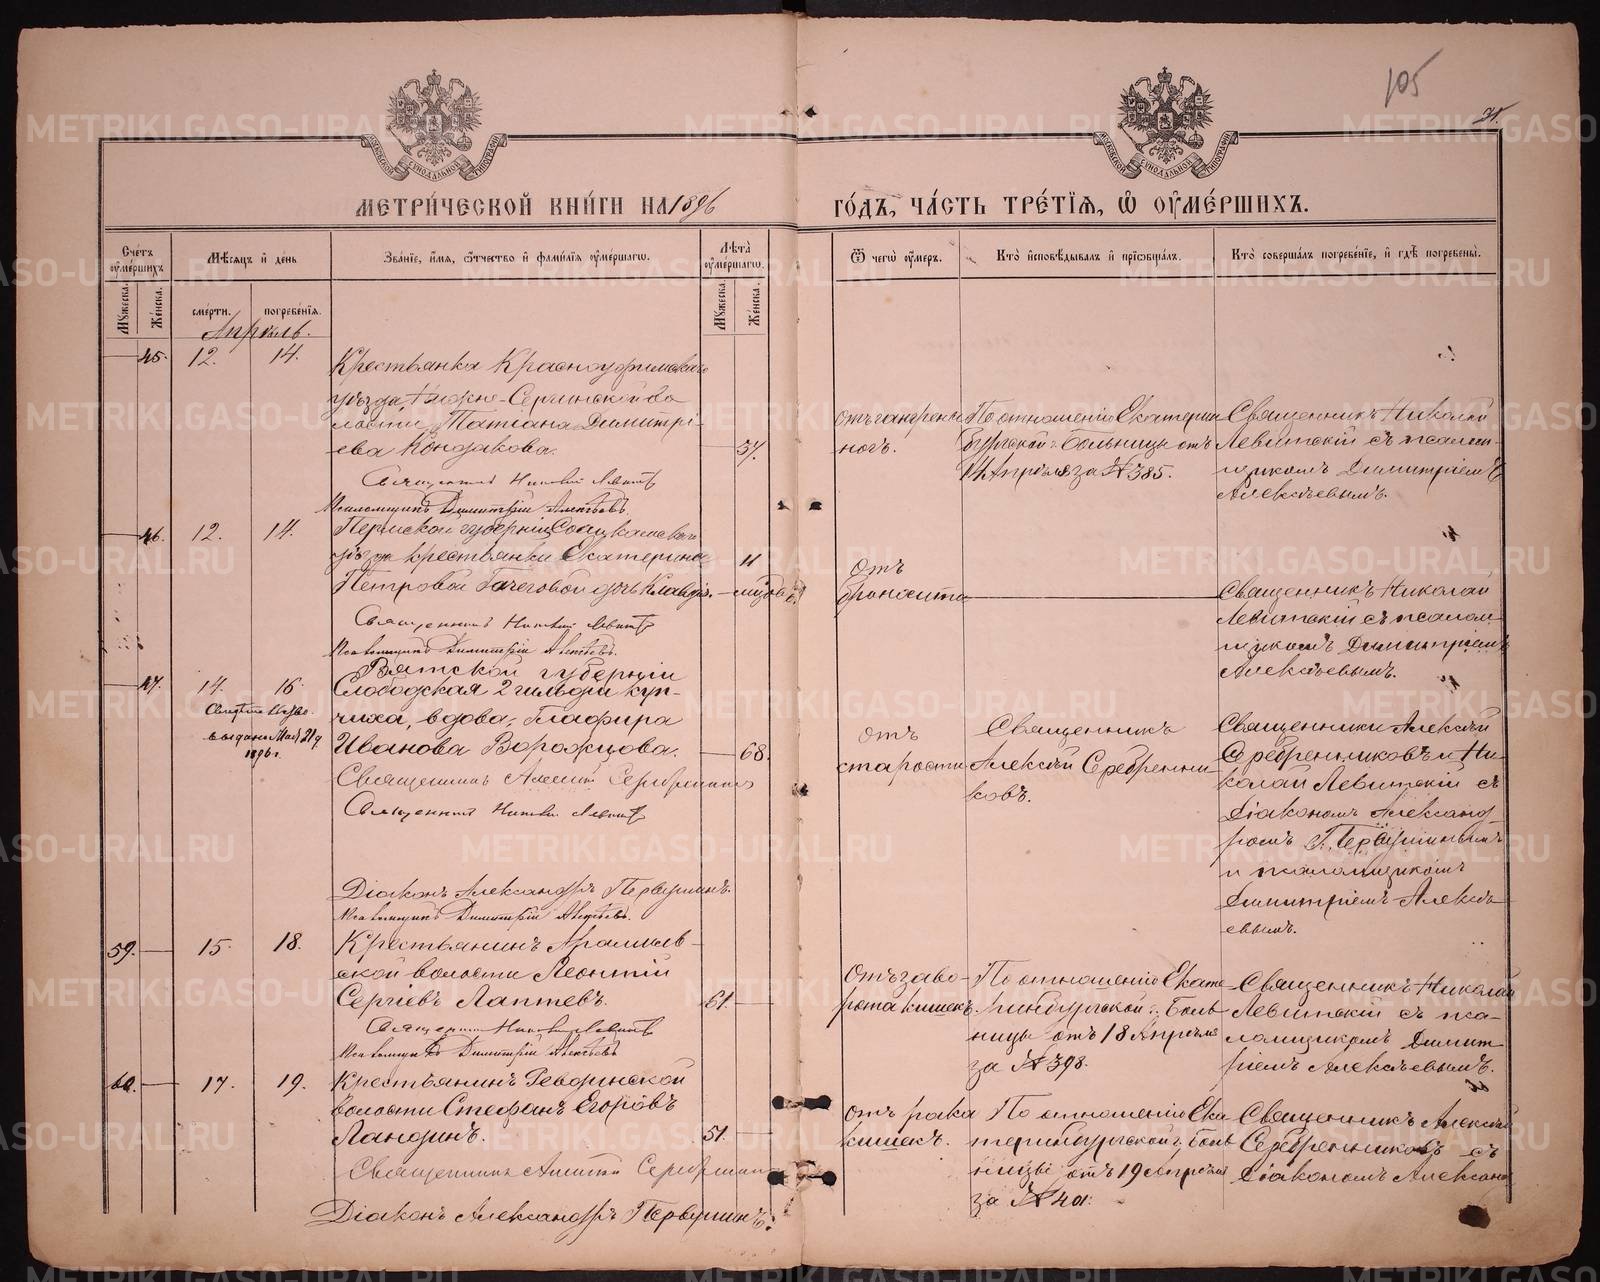 105
31.
МОСКОВСКОЙ СѴНОДАЛЬНОЙ ТИПОГРАФІИ
МОСКОВСКОЙ СѴНОДАЛЬНОЙ ТИПОГРАФІИ
МЕТРИ́ЧЕСКОЙ КНИ́ГИ НА 1896 ГО́ДЪ, ЧА́СТЬ ТРЕ́ТІЯ, Ѽ ОУМЕ́РШИХЪ.
Сче́тъ оумершихъ.
Мужеска.
Же́нска.
Мѣ́сяцъ и҆ де́нь
сме́рти.
погребе́нія.
Зва́ніе, и҆́мя, ѻ҆́тчество и҆ фами́лія оуме́ршагѡ.
Лѣ́та оуме́ршагѡ.
Мужеска.
Же́нска.
Ѿ чегѡ̀ оу́меръ.
Кто̀ и҆сповѣ́дывалъ и҆ прїѡбща́лъ.
Кто̀ соверша́лъ погребе́ніе, и҆ гдѣ̀ погребены̀.
Апрѣль.
45. 12. 14.
Крестьянка Красноуфимскаго
уѣзда, Нижне-Сергинской во
лости, Татіана Димитрі-
ева Кондакова.
37.
Священникъ Николай Левитскій
Псаломщикъ Димитрій Алексѣевъ.
отъ гангрены
ногъ.
По отношенію Екатерин
бургской больницы отъ
14 Апрѣля за № 385.
Священникъ Николай
Левитскій съ псалом-
щикомъ Димитріемъ
Алексѣевымъ.
46. 12. 14.
Пермской губерніи,
уѣзда крестьянки Екатерины
Петровой дочь Клавдія.
11
мѣсяцевъ
Священникъ Николай Левитскій
Псаломщикъ Димитрій Алексѣевъ.
отъ
бронхита
Священникъ Николай
Левитскій съ псалом
щикомъ Димитріемъ
Алексѣевымъ.
47. 14. 16.
выдано Мая 21 д
1896 г.
Вятской губерніи
Слободская 2 гильдіи куп-
чиха, вдова, Глафира
Иванова Ворожцова.
68.
Священникъ Алексій Серебренниковъ
Священникъ Николай Левитскій
Діаконъ Александръ Первушинъ.
Псаломщикъ Димитрій Алексѣевъ.
отъ
старости
Священникъ
Алексѣй Серебренни-
ковъ.
Священники Алексѣй
Серебренниковъ и Ни-
колай Левитскій съ
діакономъ Александ-
ромъ Первушинымъ
и псаломщикомъ
Димитріемъ Алексѣ-
евымъ.
59. 15. 18.
Крестьянинъ Арамилев-
ской волости Леонтій
Сергіевъ Лаптевъ.
61.
Священникъ Николай Левитскій
Псаломщикъ Димитрій Алексѣевъ
отъ заво-
рота кишекъ.
По отношенію Екате
ринбургской Боль
ницы отъ 18 Апрѣля
за № 398.
Священникъ Николай
Левитскій съ пса-
ломщикомъ Димит
ріемъ Алексѣевымъ.
60. 17. 19.
Крестьянинъ Ревдинской
волости Стефанъ Егоровъ
51.
Священникъ Алексій Серебренниковъ
Діаконъ Александръ Первушинъ.
отъ рака
кишекъ.
По отношенію Ека
теринбургской Боль
ницы отъ 19 Апрѣля
за № 401.
Священникъ Алексѣй
Серебренниковъ съ
діакономъ Александ
METRIKI.GASO-URAL.RU